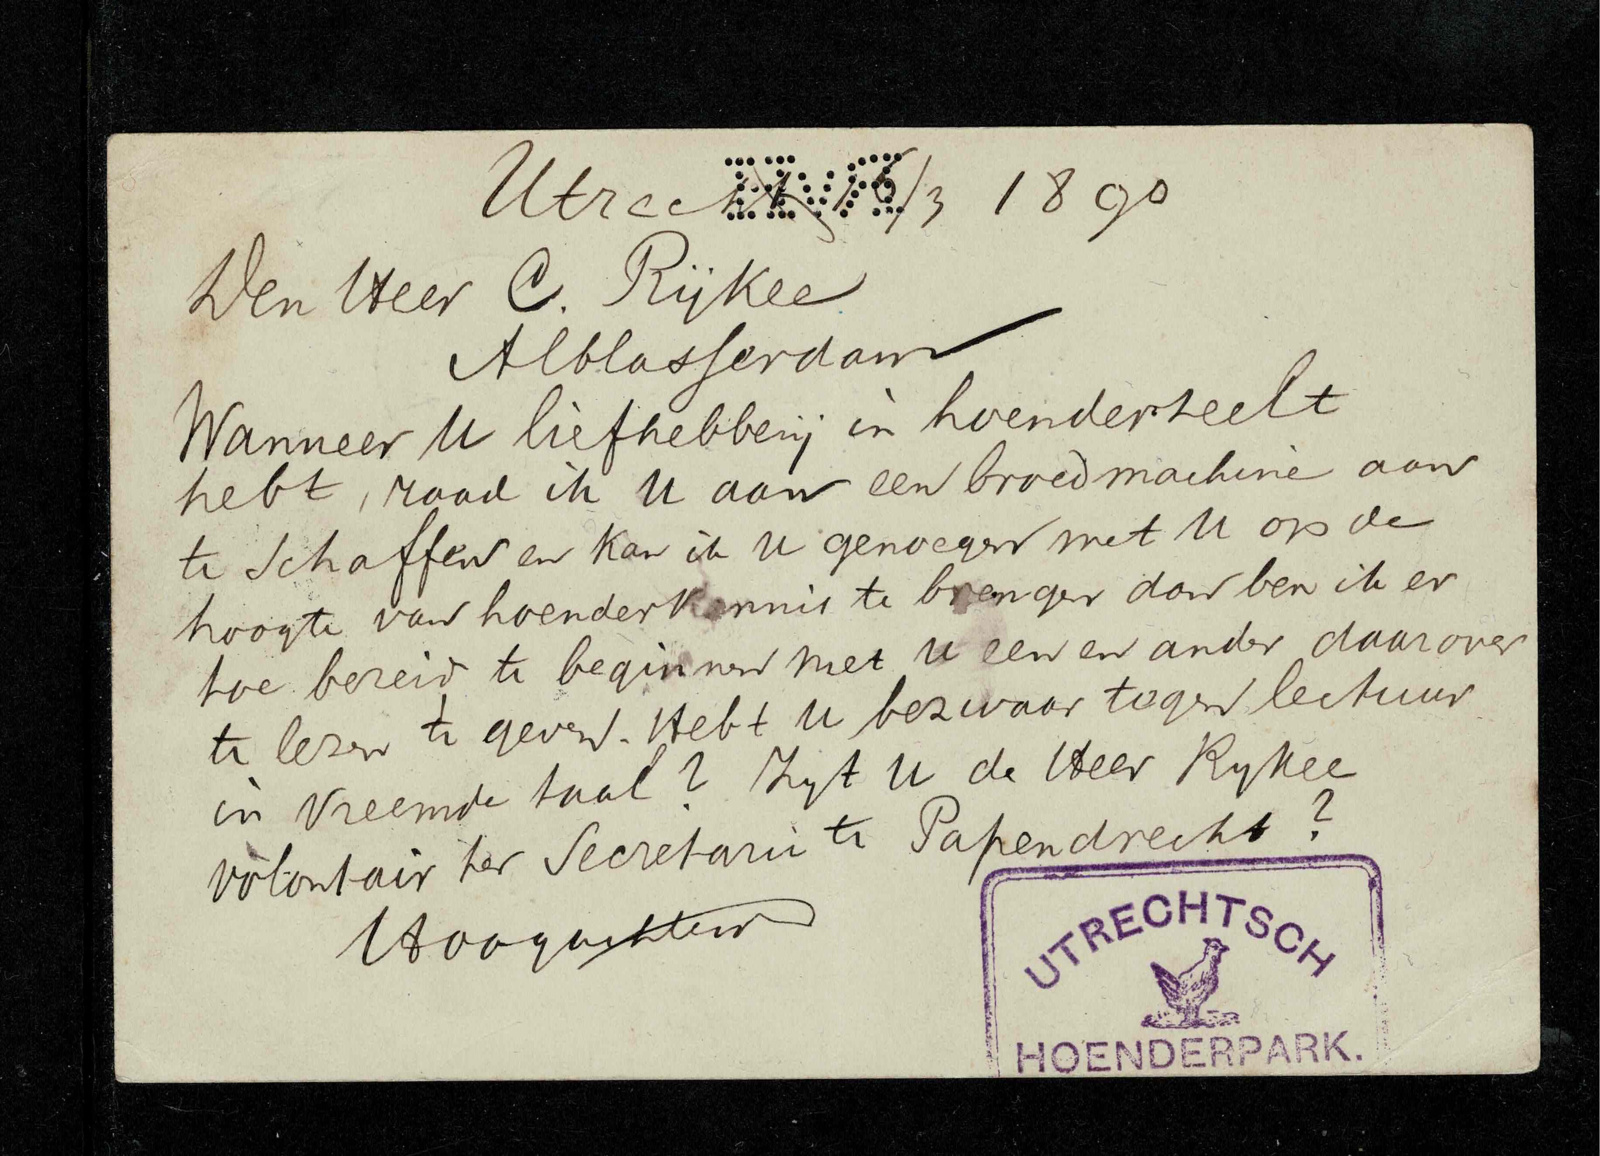 Utrecht, 15/3 1890
Den Heer C. Rijkee
Alblasserdam
Wanneer U liefhebberij in hoenderteelt
hebt, raad ik U aan een broedmachine aan
te schaffen en kan ik U genoegen met U op de
hoogte van hoenderkennis te brengen dan ben ik er
toe bereid te beginnen met U een en ander daarover
te lezen te geven. Hebt U bezwaar tegen lectuur
in vreemde taal? Zijt U de Heer Rykee
volontair ter Secretarie te Papendrecht?
Hoogachtend
UTRECHTSCH
HOENDERPARK.